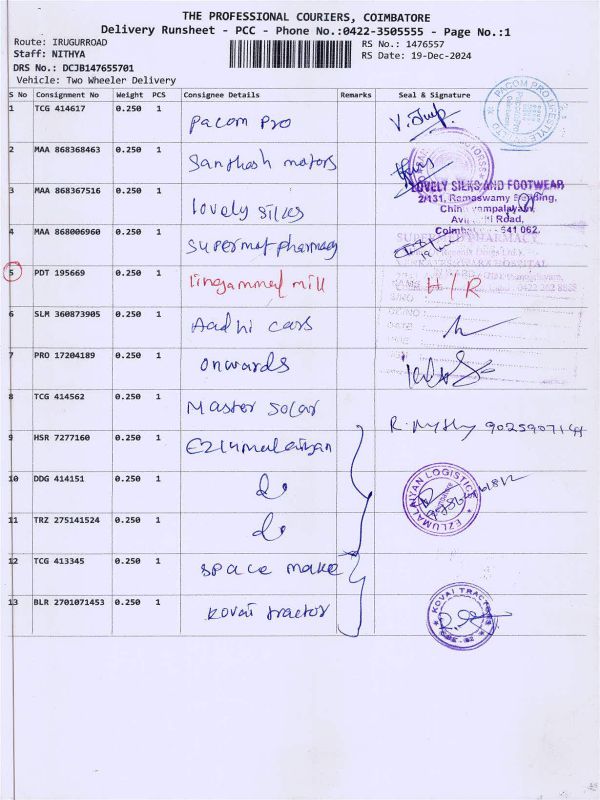 THE PROFESSIONAL COURIERS, COIMBATORE
Delivery Runsheet - PCC - Phone No.:0422-3505555 - Page No.:1
Route: IRUGURROAD RS No.: 1476557
Staff: NITHYA RS Date: 19-Dec-2024
DRS No.: DCJB147655701
Vehicle: Two Wheeler Delivery
S No Consignment No Weight PCS Consignee Details Remarks Seal & Signature
1 TCG 414617 0.250 1 Pacom Pro
2 MAA 868368463 0.250 1 Santhosh motors
3 MAA 868367516 0.250 1 lovely silks
LOVELY SILKS AND FOOTWEAR
2/131, Ramaswamy
Road,
641 062.
4 MAA 868006960 0.250 1 supermat pharmacy
PHARMACY
HOSPITAL
5 PDT 195669 0.250 1 lingammal mill H/R
6 SLM 360873905 0.250 1 Aadhi cars
7 PRO 17204189 0.250 1 onwards
8 TCG 414562 0.250 1 Master solar
9 HSR 7277160 0.250 1 Ezlumalaiyan
10 DDG 414151 0.250 1 do
EZLUMALAIYAN LOGISTICS
11 TRZ 275141524 0.250 1 do
12 TCG 413345 0.250 1 space make
13 BLR 2701071453 0.250 1 kovai tractor
KOVAI TRACTORS